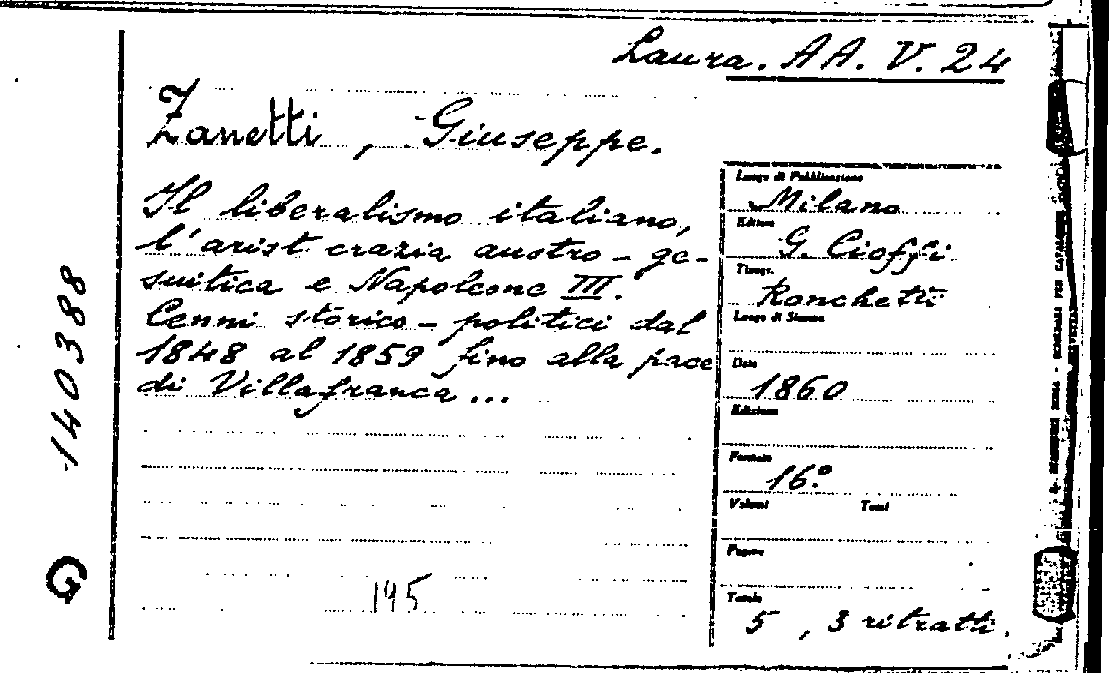 Laura. AA. V. 24
Zanetti, Giuseppe.
Il liberalismo italiano,
l'arist crazia austro-ge-
suitica e Napoleone III.
Cenni storico-politici dal
1848 al 1859 fino alla pace
di Villafranca...
195
G 140388
Luogo di Pubblicazione
Milano
Editore
G. Cioffi
Tipogr.
Ronchetti
Luogo di Stampa
Data
1860
Edizione
Formato
16.º
Volumi Tomi
Pagine
Tavole
5, 3 ritratti.